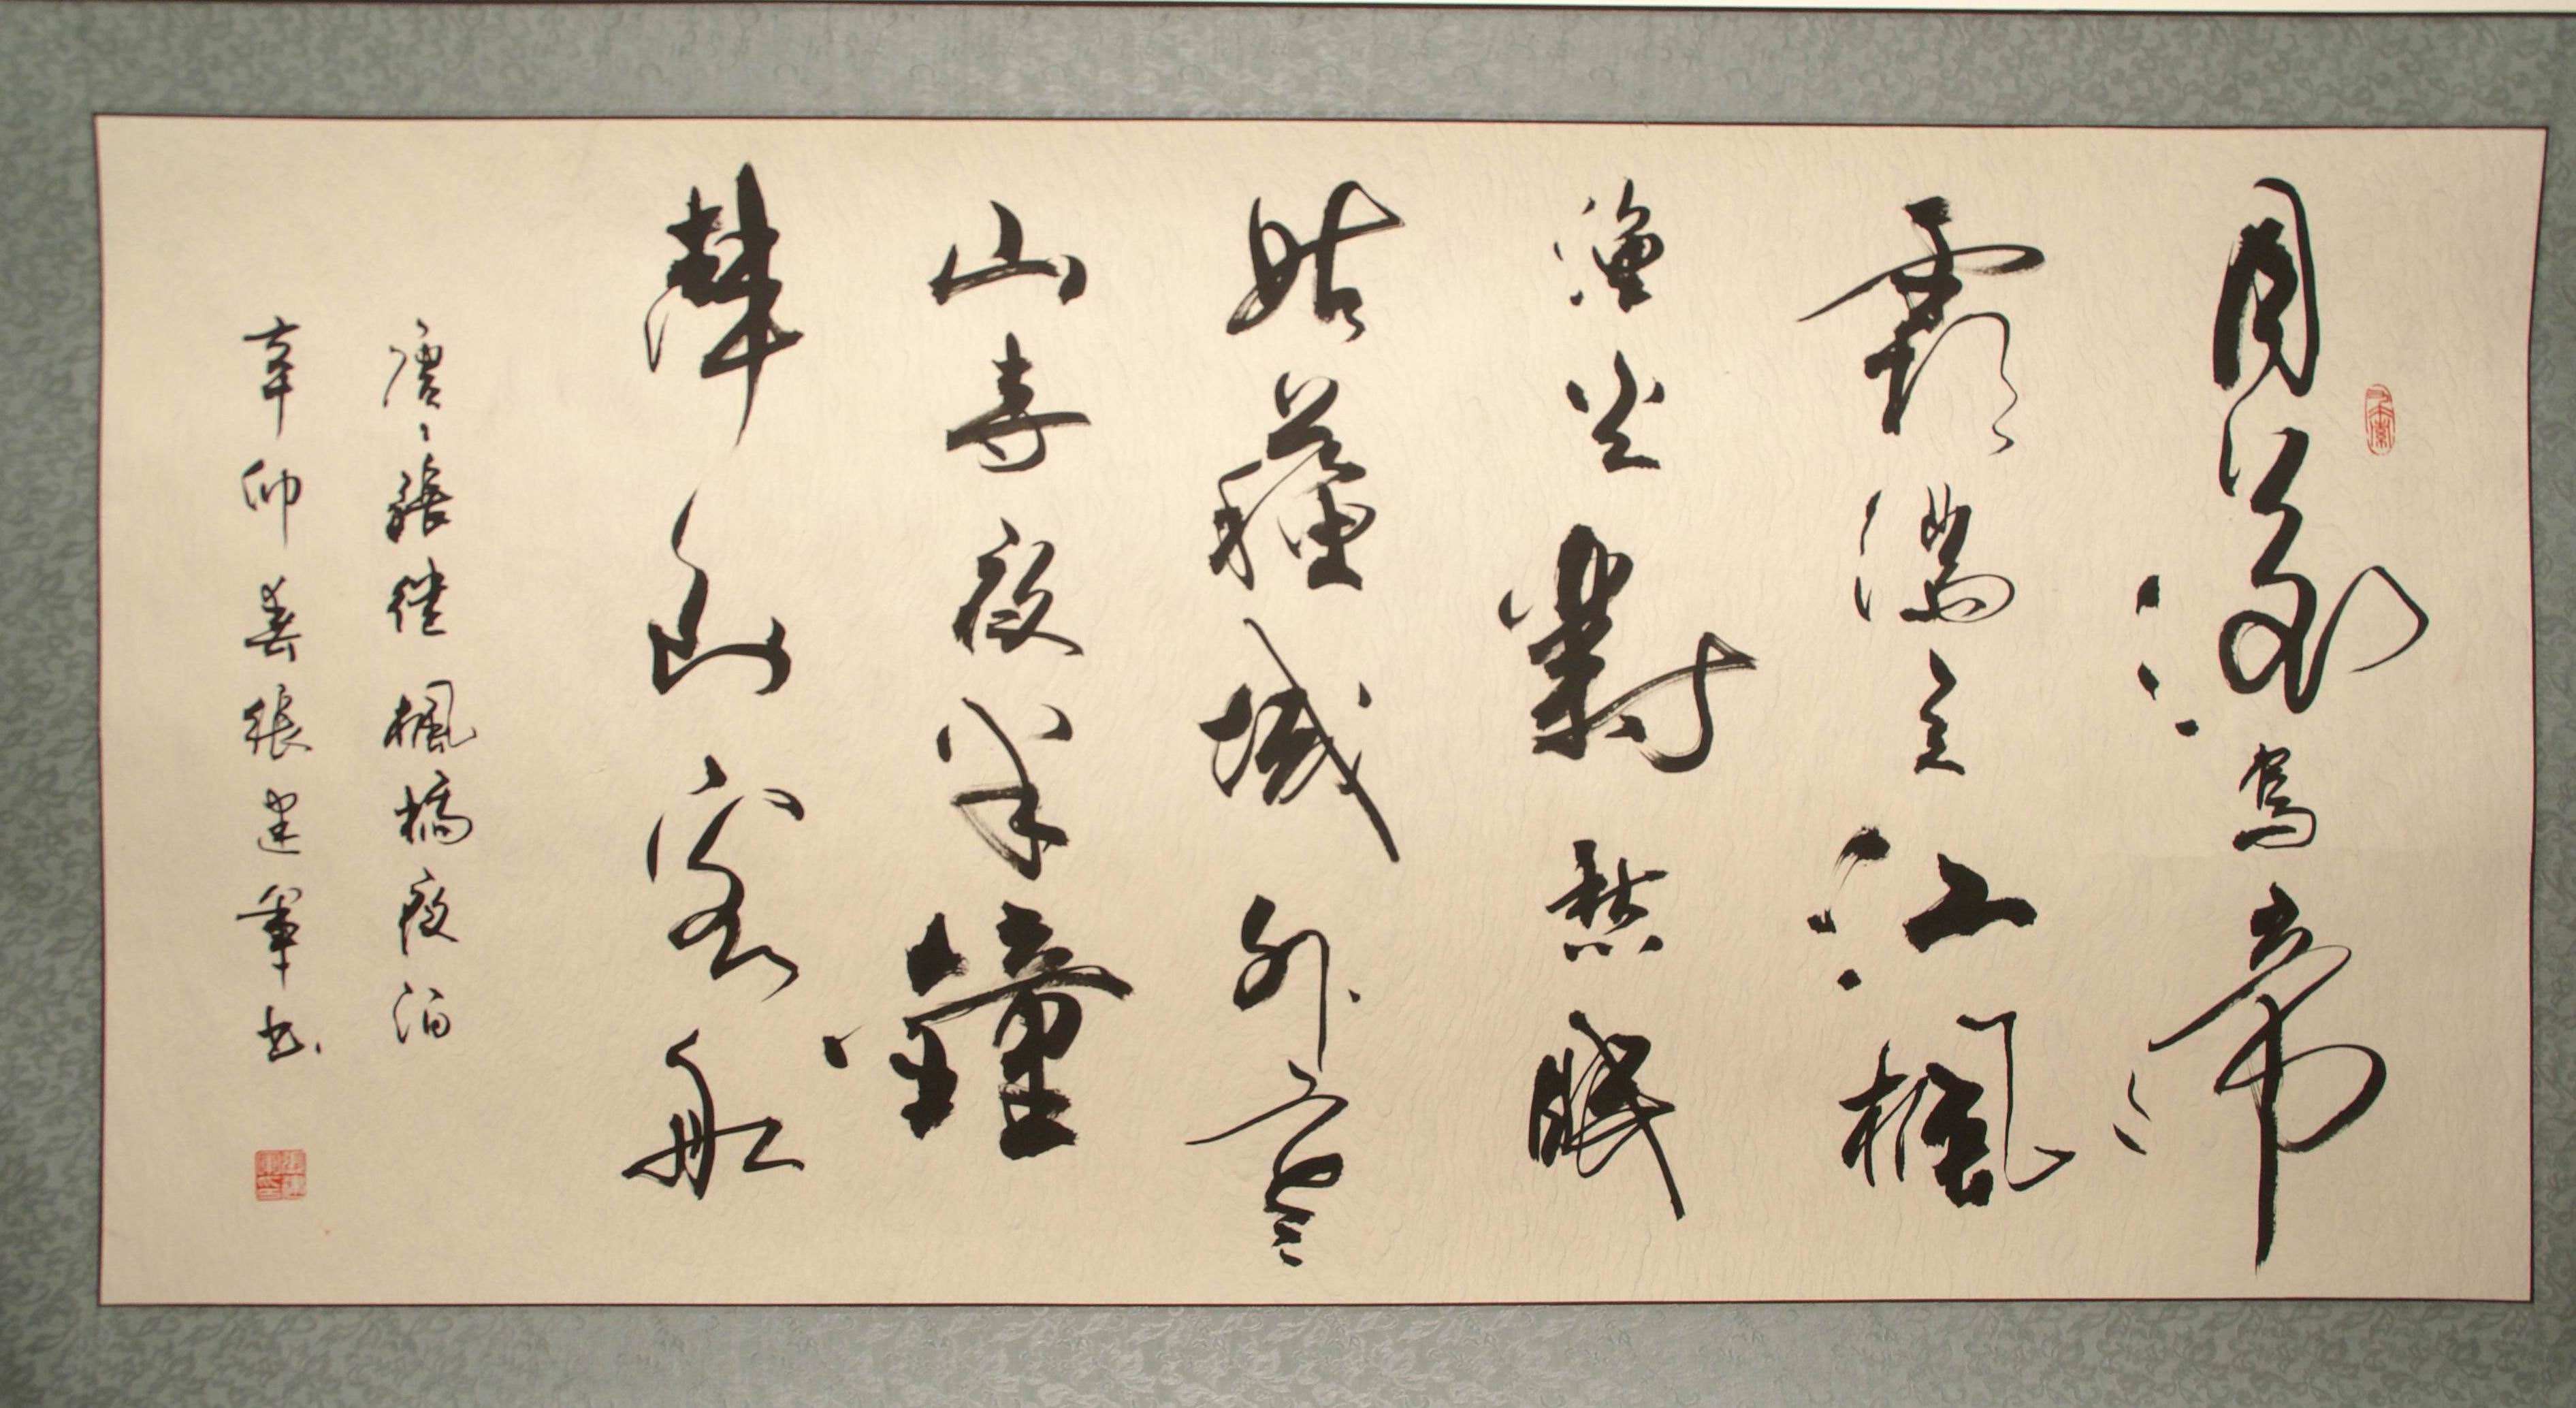 月落烏啼
霜滿天江楓
漁火對愁眠
姑蘇城外寒
山寺夜半鐘
聲到客船
唐、張继楓橋夜泊
辛卯春張建軍书